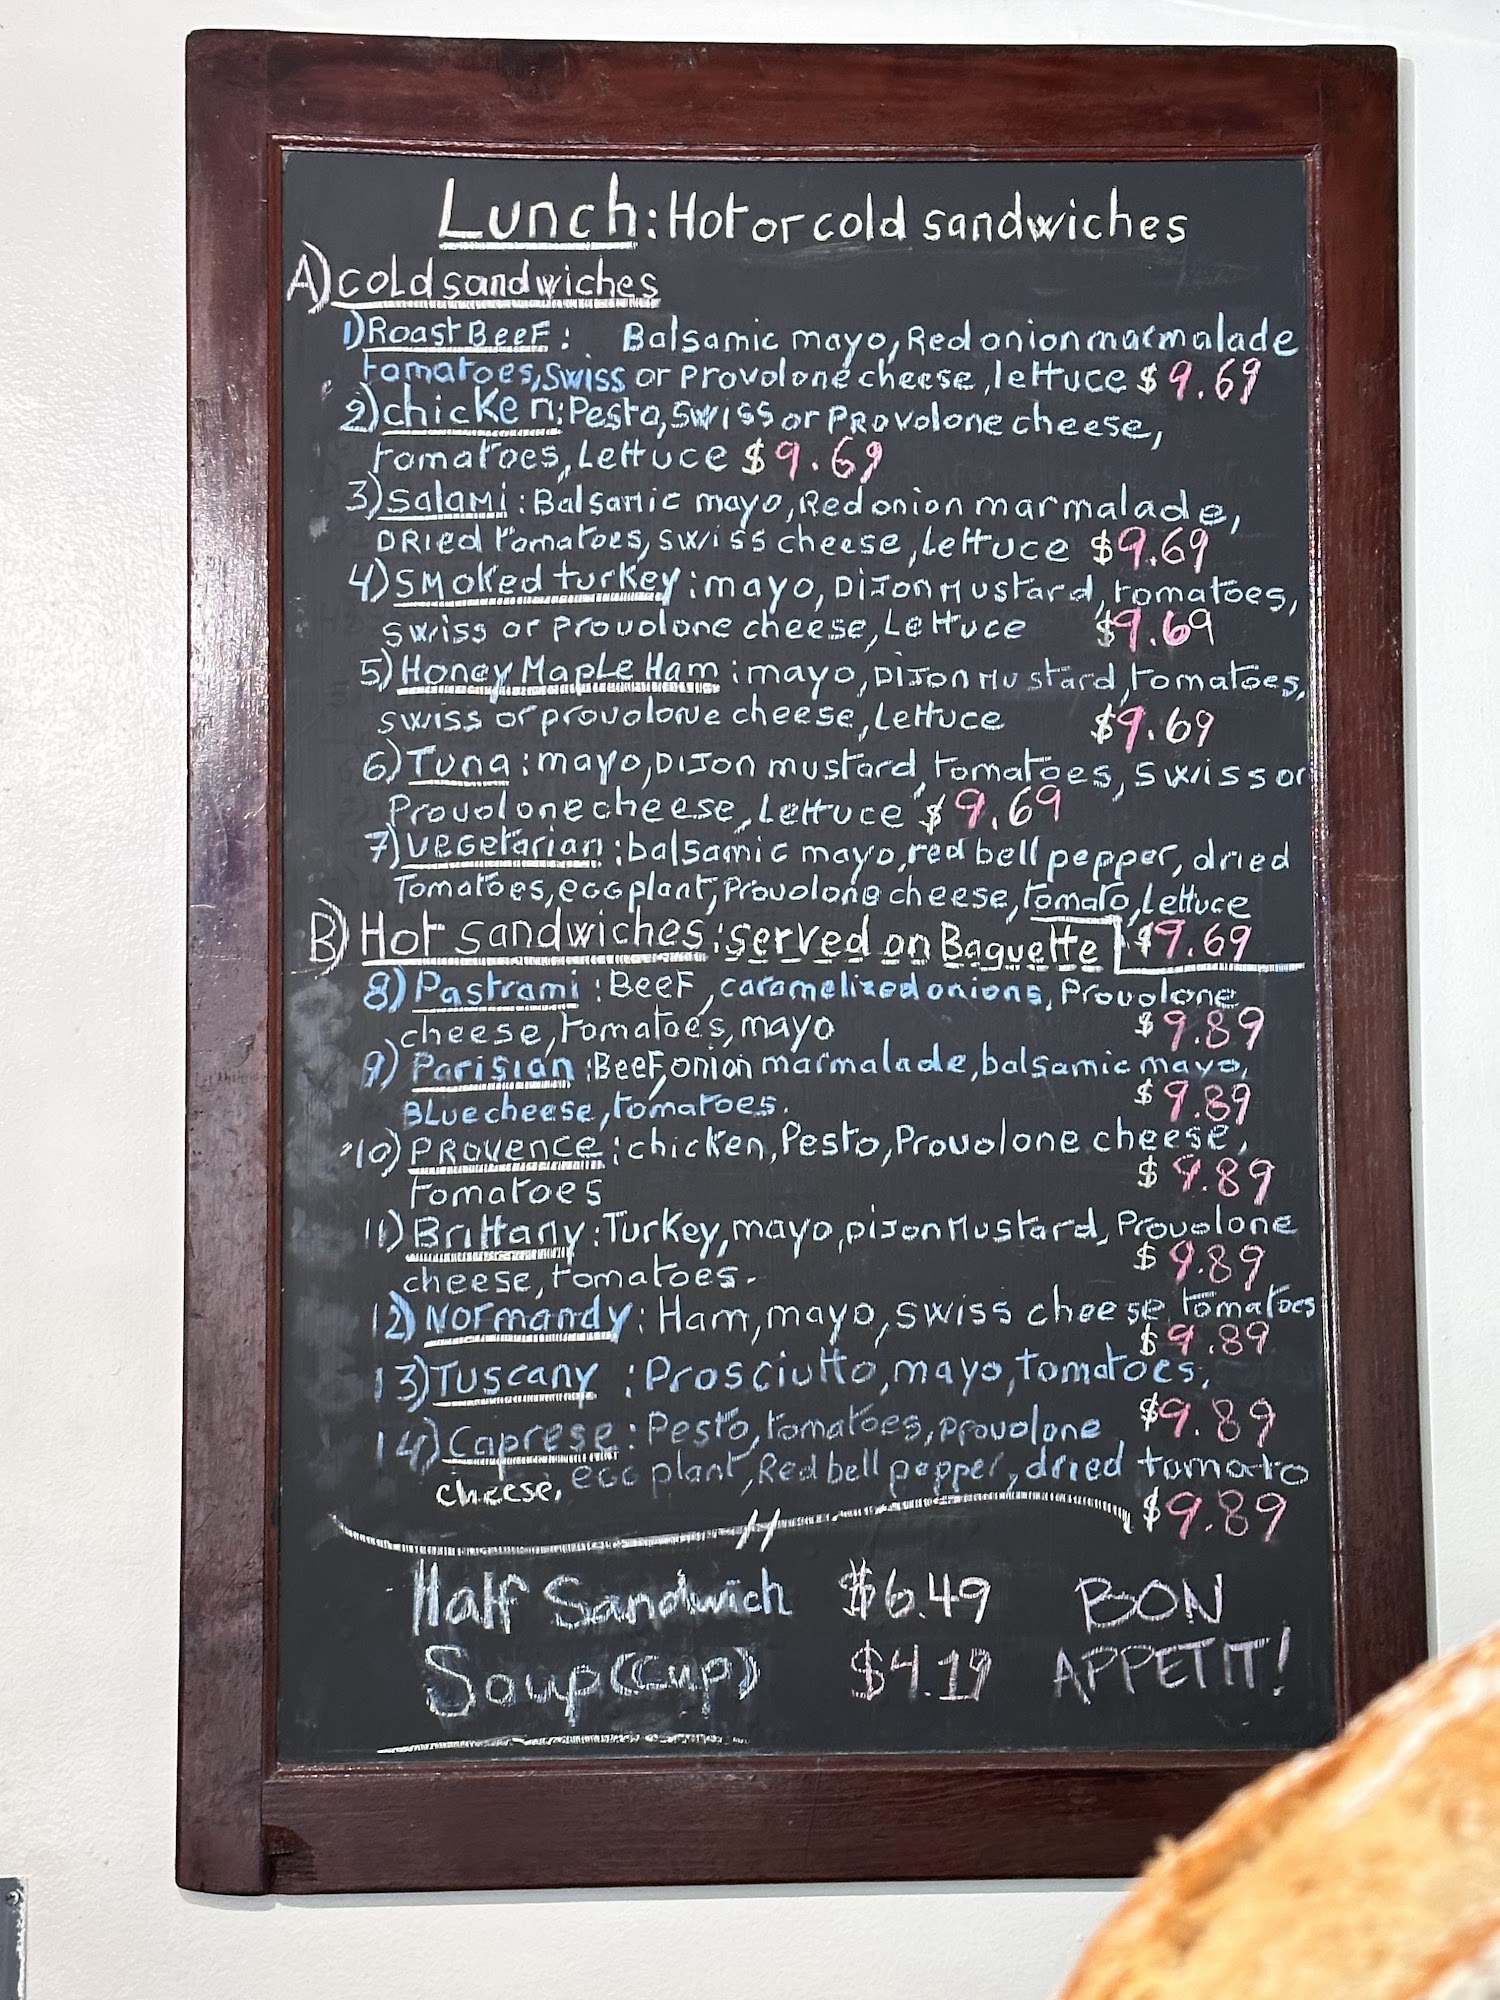 Lunch: Hot or cold sandwiches
A) cold sandwiches
1) Roast Beef: Balsamic mayo, Red onion marmalade
tomatoes, swiss or provolone cheese, lettuce $9.69
2) chicken: Pesto, swiss or Provolone cheese,
tomatoes, Lettuce $9.69
3) Salami: Balsamic mayo, Red onion marmalade,
DRied tomatoes, swiss cheese, Lettuce $9.69
4) Smoked turkey: mayo, Dijon Mustard, tomatoes,
swiss or provolone cheese, Lettuce $9.69
5) Honey Maple Ham: mayo, Dijon Mustard, tomatoes,
swiss or provolone cheese, Lettuce $9.69
6) Tuna: mayo, Dijon mustard, tomatoes, swiss or
Provolone cheese, Lettuce $9.69
7) vegetarian: balsamic mayo, red bell pepper, dried
Tomatoes, eggplant, Provolone cheese, tomato, Lettuce
$9.69
B) Hot sandwiches: served on Baguette
8) Pastrami: Beef, caramelized onions, Provolone
cheese, tomatoes, mayo $9.89
9) Parisian: Beef, onion marmalade, balsamic mayo,
Blue cheese, tomatoes. $9.89
10) Provence: chicken, Pesto, Provolone cheese,
tomatoes $9.89
11) Brittany: Turkey, mayo, Dijon Mustard, Provolone
cheese, tomatoes. $9.89
12) Normandy: Ham, mayo, swiss cheese tomatoes
$9.89
13) Tuscany: Prosciutto, mayo, tomatoes,
$9.89
14) Caprese: Pesto, tomatoes, provolone
cheese, egg plant, Red bell pepper, dried tomato
$9.89
Half Sandwich $6.49 BON
Soup (Cup) $4.19 APPETIT!